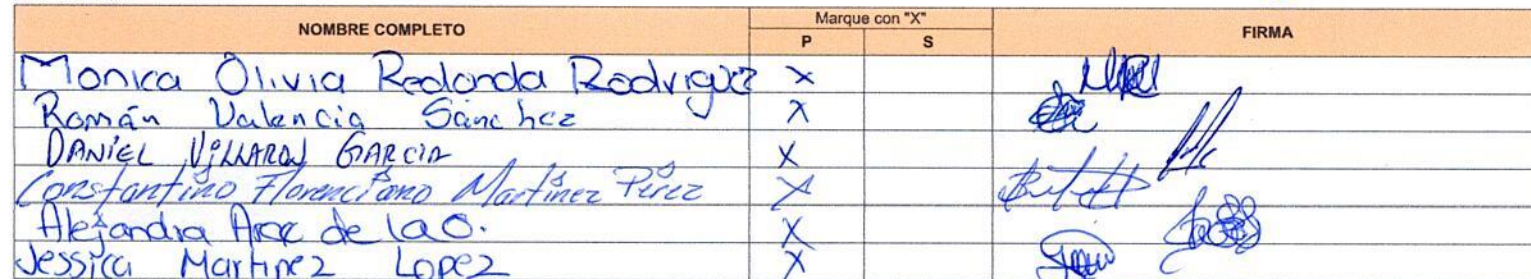 NOMBRE COMPLETO Marque con "X" FIRMA
P S
Monica Olivia Redonda Rodriguez X
Román Valencia Sánchez X
DANIEL GARCIA X
Constantino Florenciano Martínez Pérez X
Alejandra Arce de la O. X
Jessica Martinez Lopez X